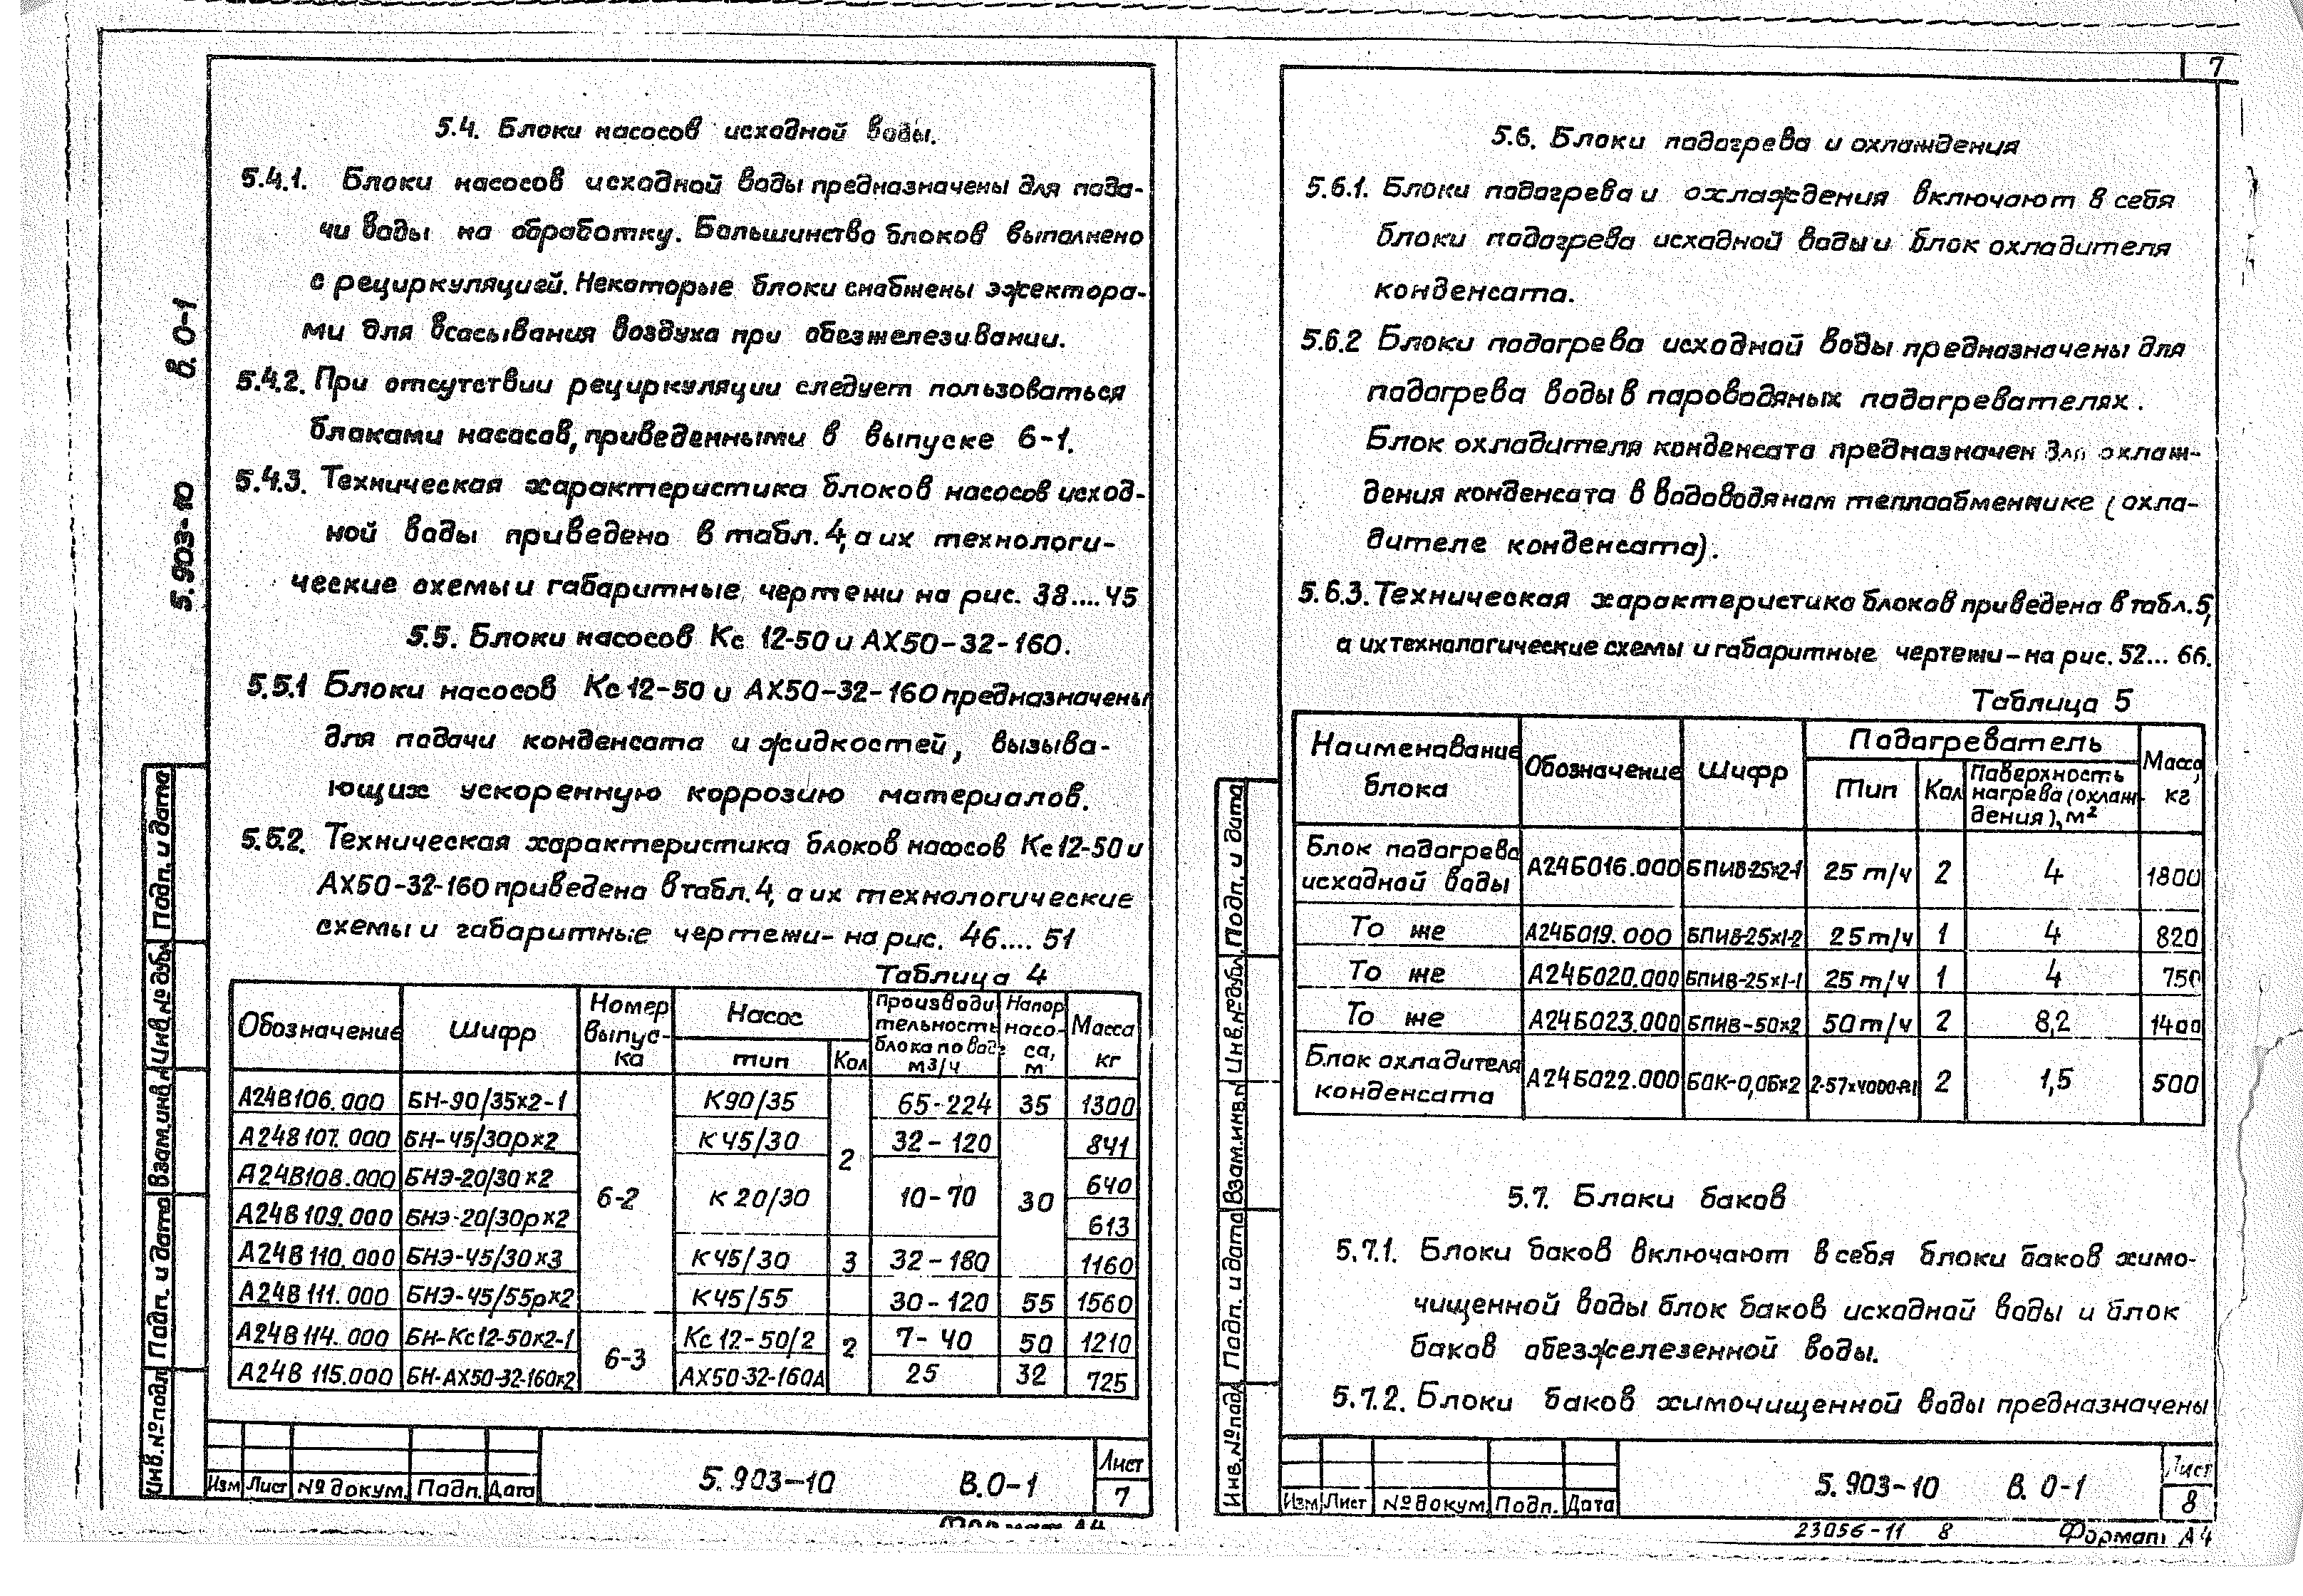 7
5.4. Блоки насосов исходной воды.
5.4.1. Блоки насосов исходной воды предназначены для пода-
чи воды на обработку. Большинство блоков выполнено
с рециркуляцией. Некоторые блоки снабжены эжектора-
ми для всасывания воздуха при обезжелезивании.
5.4.2. При отсутствии рециркуляции следует пользоваться
блоками насосов, приведенными в выпуске 6-1.
5.4.3. Техническая характеристика блоков насосов исход-
ной воды приведено в табл. 4, а их технологи-
ческие схемы и габаритные чертежи на рис. 38....45
5.5. Блоки насосов Кс 12-50 и АХ50-32-160.
5.5.1 Блоки насосов Кс 12-50 и АХ50-32-160 предназначены
для подачи конденсата и жидкостей, вызыва-
ющих ускоренную коррозию материалов.
5.5.2. Техническая характеристика блоков насосов Кс 12-50 и
АХ50-32-160 приведена в табл. 4, а их технологические
схемы и габаритные чертежи - на рис. 46.... 51
Таблица 4
Обозначение Шифр Номер выпус-ка Насос тип Кол Производи-тельность блока по воде м3/ч Напор насо-са, м Масса кг
А24В106.000 БН-90/35х2-1 6-2 К90/35 2 65-224 35 1300
А24В107.000 БН-45/30рх2 К45/30 32-120 30 841
А24В108.000 БНЭ-20/30х2 К 20/30 10-70 640
А24В109.000 БНЭ-20/30рх2 613
А24В110.000 БНЭ-45/30х3 К45/30 3 32-180 1160
А24В111.000 БНЭ-45/55рх2 К45/55 2 30-120 55 1560
А24В114.000 БН-Кс12-50х2-1 6-3 Кс 12-50/2 7-40 50 1210
А24В115.000 БН-АХ50-32-160х2 АХ50-32-160А 25 32 725
5.903-10 В.0-1
Подп. и дата
Инв.№ дубл
Взам.инв.№
Подп. и дата
Инв.№ подл
Изм Лист № докум. Подп. Дата
5.903-10 В.0-1
Лист
7
Формат А4
5.6. Блоки подогрева и охлаждения
5.6.1. Блоки подогрева и охлаждения включают в себя
блоки подогрева исходной воды и блок охладителя
конденсата.
5.6.2 Блоки подогрева исходной воды предназначены для
подогрева воды в пароводяных подогревателях.
Блок охладителя конденсата предназначен для охлаж-
дения конденсата в водоводяном теплообменнике (охла-
дителе конденсата).
5.6.3. Техническая характеристика блоков приведена в табл. 5,
а их технологические схемы и габаритные чертежи - на рис. 52... 66.
Таблица 5
Наименование блока Обозначение Шифр Подогреватель Тип Кол Поверхность нагрева (охлаж-дения), м² Масса, кг
Блок подогрева исходной воды А24Б016.000 БПИВ-25х2-1 25 т/ч 2 4 1800
То же А24Б019.000 БПИВ-25х1-2 25 т/ч 1 4 820
То же А24Б020.000 БПИВ-25х1-1 25 т/ч 1 4 750
То же А24Б023.000 БПИВ-50х2 50 т/ч 2 8,2 1400
Блок охладителя конденсата А24Б022.000 БОК-0,05х2 2-57х4000-Р1 2 1,5 500
5.7. Блоки баков
5.7.1. Блоки баков включают в себя блоки баков химо-
чищенной воды блок баков исходной воды и блок
баков обезжелезенной воды.
5.7.2. Блоки баков химочищенной воды предназначены
Подп. и дата
Инв.№ дубл.
Взам.инв.№
Подп. и дата
Инв.№ подл
Изм Лист № докум. Подп. Дата
5.903-10 В.0-1
Лист
8
23056-11 8
Формат А4